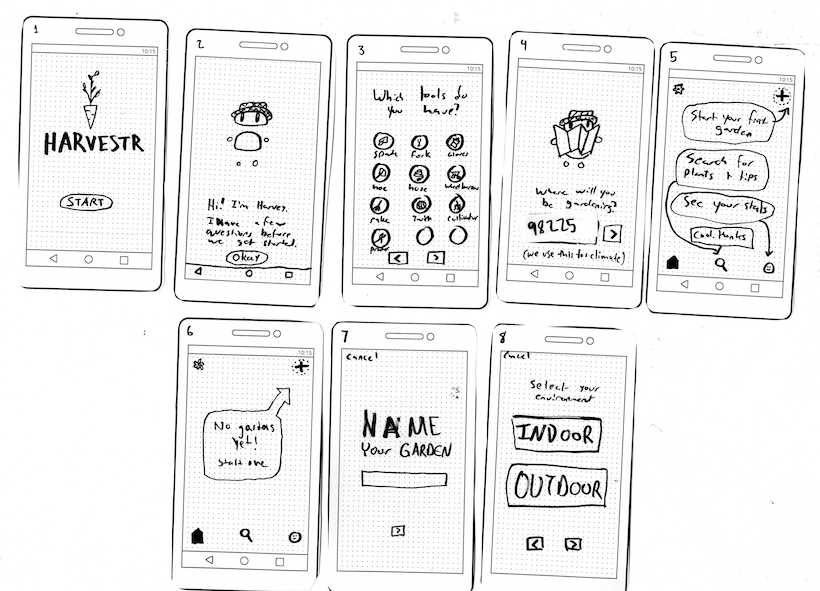 1
10:15
HARVESTR
START
2
10:15
Hi! I'm Harvey.
I have a few
questions before
we get started.
Okay
3
10:15
Which tools do
you have?
spade fork gloves
hoe hose
rake cultivator
4
10:15
Where will you
be gardening?
98225
(we use this for climate)
5
10:15
Start your first
garden
Search for
plants + tips
See your
Cool, thanks
6
10:15
No gardens
yet!
start one
7
Cancel
NAME
Your GARDEN
8
Cancel
Select your
environment
INDOOR
OUTDOOR